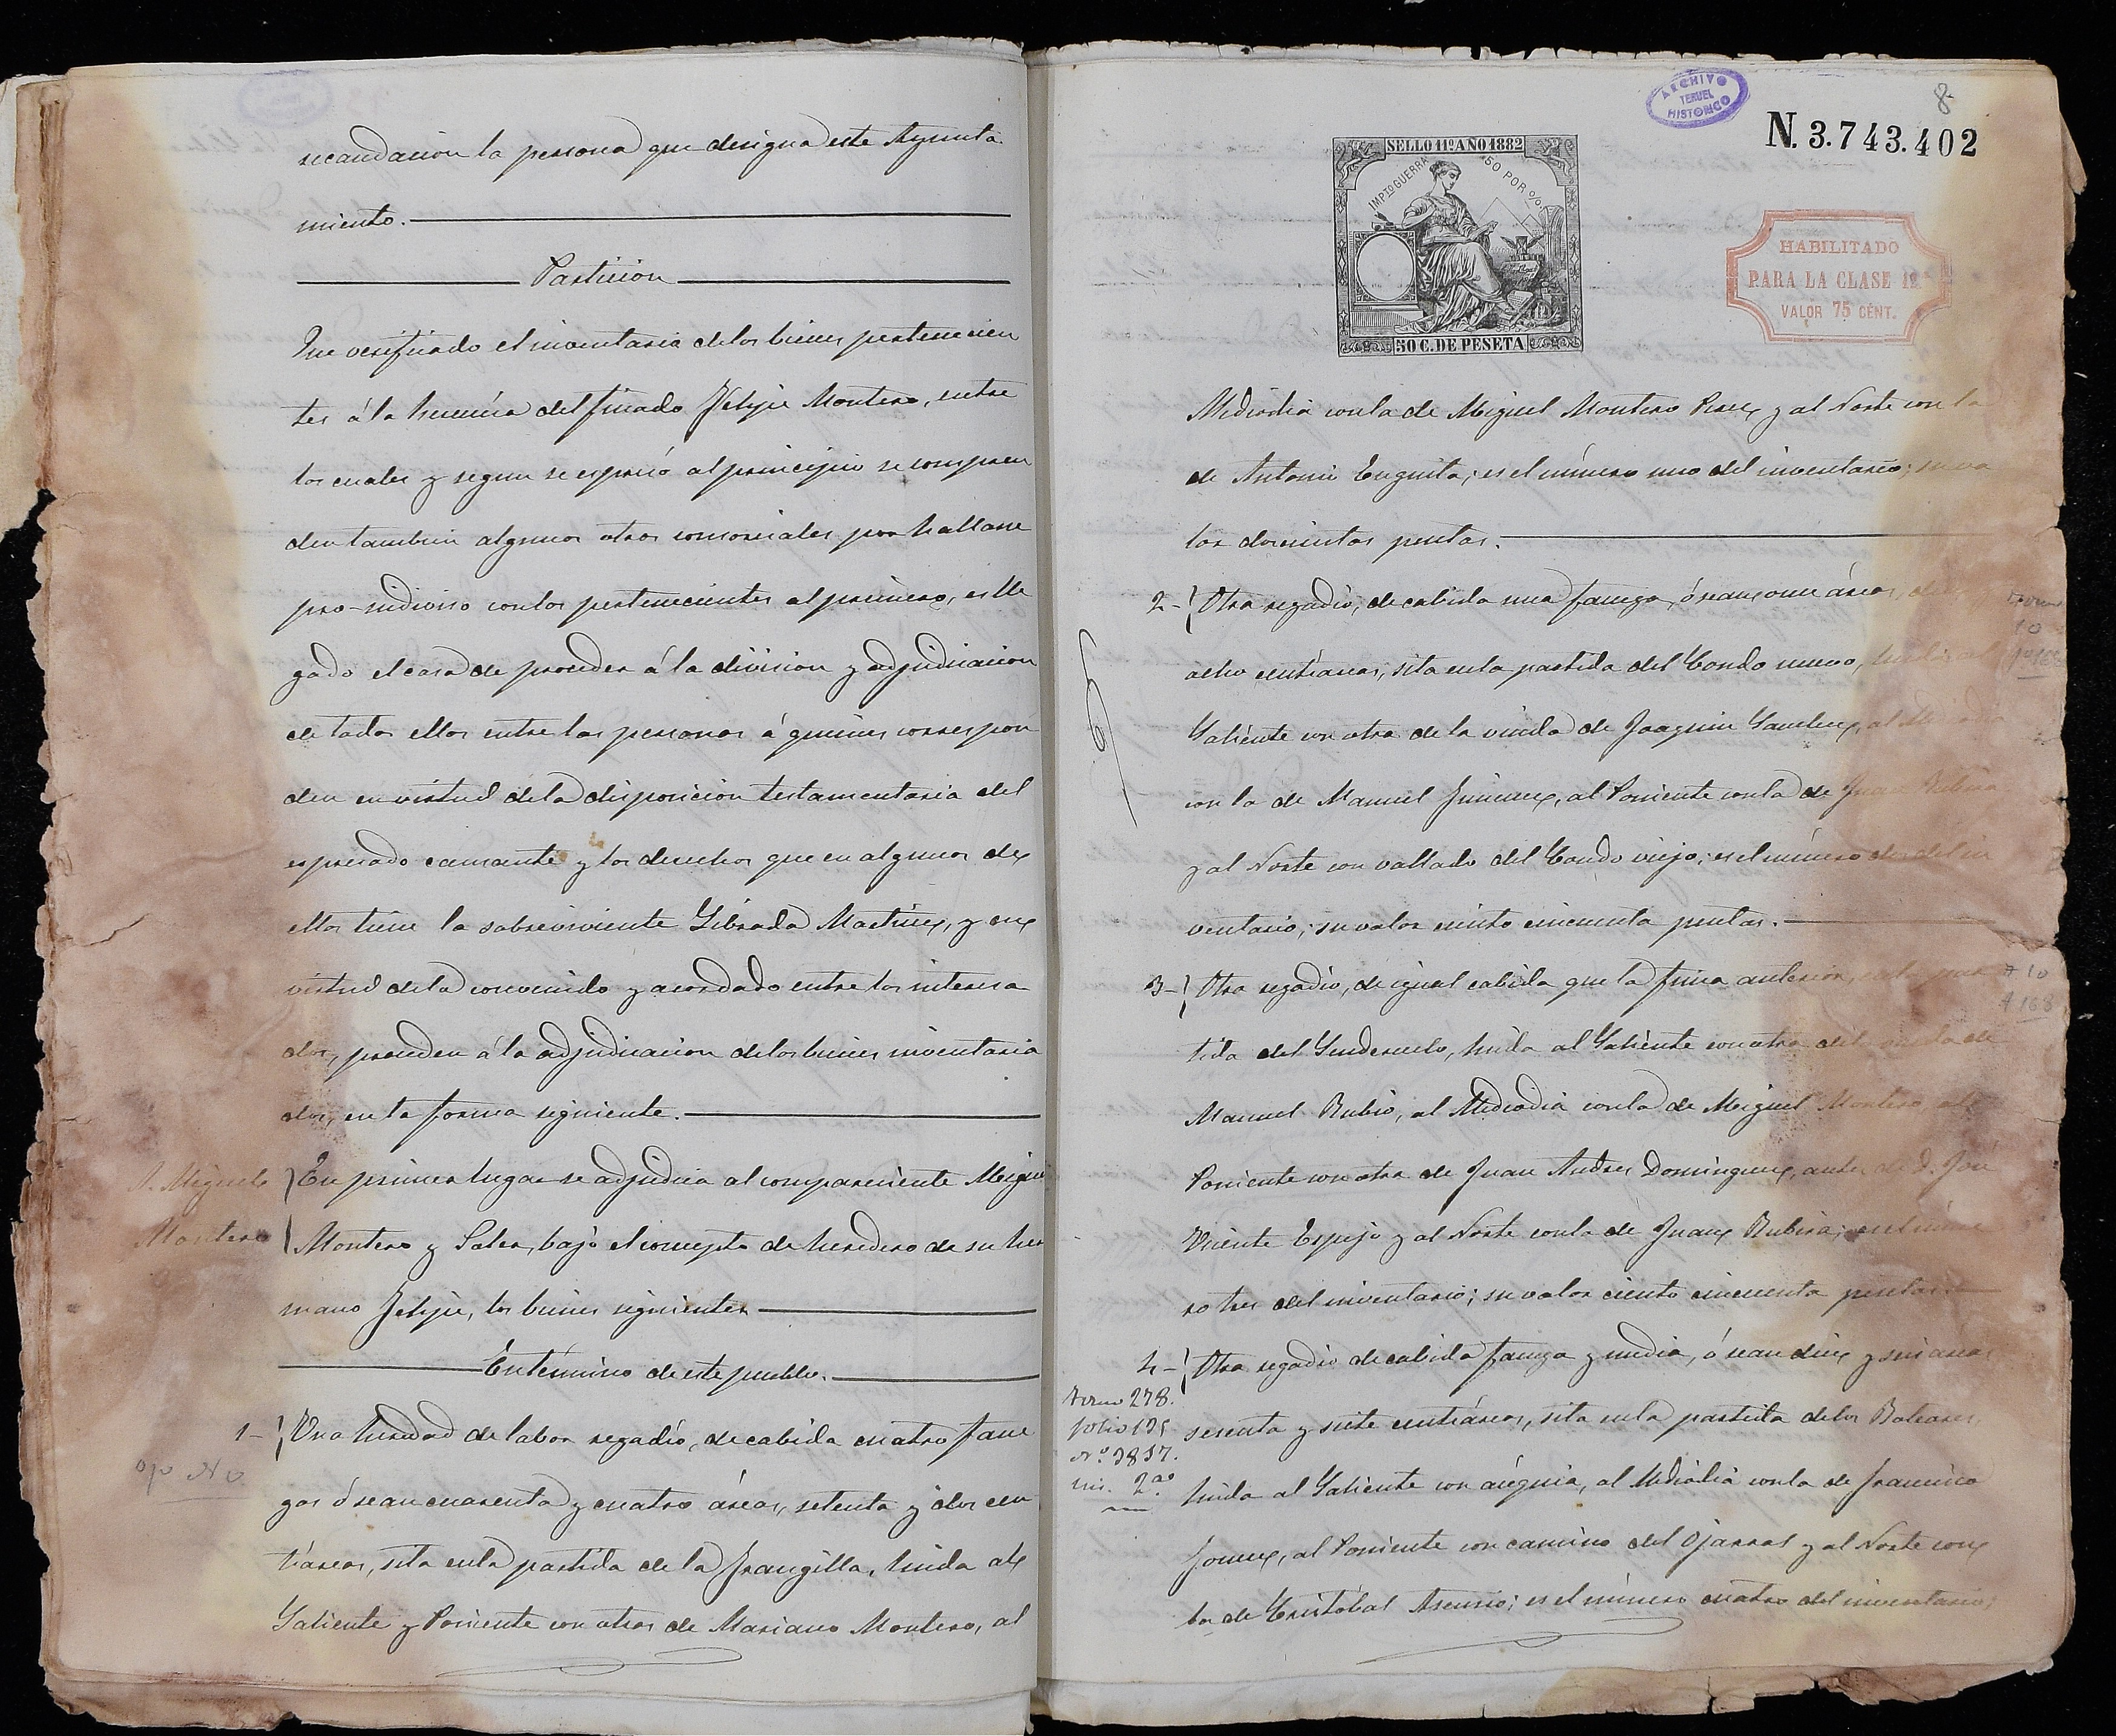 recaudacion la persona que designa este Ayunta
miento.
Particion
Que verificado el inventario de los bienes pertenecien
tes á la herencia del finado Felipe Montero, entre
los cuales y segun se espresó al principio se compren
den tambien algunos otros consorciales por hallarse
pro-indiviso con los pertenecientes al primero, es lle
gado el caso de proceder á la division y adjudicacion
de todos ellos entre las personas á quienes correspon
den en virtud de la disposicion testamentaria del
espresado causante y los derechos que en algunos de
ellos tiene la sobreviviente Librada Martinez, y en
virtud de lo convenido y acordado entre los interesa
dos, proceden á la adjudicacion de los bienes inventaria
dos, en la forma siguiente.
A Miguel
Montero
En primer lugar se adjudica al compareciente Miguel
Montero y Soler, bajo el concepto de heredero de su her
mano Felipe, los bienes siguientes
En término de este pueblo.
1- Una heredad de labor regadío, de cabida cuatro fane
gas ó sean cuarenta y cuatro áreas, setenta y dos cen
tiáreas, sita en la partida de la Frangilla, linda al
Saliente y Poniente con otras de Mariano Montero, al
8
ARCHIVO
TERUEL
HISTORICO
N. 3.743.402
SELLO 11º AÑO 1882
IMPTO GUERRA 50 POR %
50 C. DE PESETA
HABILITADO
PARA LA CLASE 12ª
VALOR 75 CÉNT.
Mediodia con la de Miguel Montero Perez y al Norte con la
de Antonio Enguita; es el número uno del inventario; su va
lor doscientas pesetas.
2- Otra regadío, de cabida una fanega, ó sean once áreas,
ocho centiáreas, sita en la partida del Hondo nuevo, linda al
Saliente con otra de la viuda de Joaquin Sanchez, al Mediodia
con la de Manuel Jimenez, al Poniente con la de Juan Rubira
y al Norte con vallado del Hondo viejo; es el número dos del in
ventario; su valor ciento cincuenta pesetas.
3- Otra regadío, de igual cabida que la finca anterior, en la par
tida del Senderuelo, linda al Saliente con otra de la viuda de
Manuel Rubio, al Mediodia con la de Miguel Montero al
Poniente con otra de Juan Andres Dominguez, antes de D. José
Vicente Espejo y al Norte con la de Juan Rubira; es el núme
ro tres del inventario; su valor ciento cincuenta pesetas.
4- Otra regadío de cabida fanega y media, ó sean diez y seis áreas
Tomo 278.
folio 135
Nº 3837.
ins. 2ª
sesenta y siete centiáreas, sita en la partida de los Balcares,
linda al Saliente con acéquia, al Mediodia con la de Francisco
Gomez, al Poniente con camino del Ojarral y al Norte con
la de Cristóbal Asensio; es el número cuatro del inventario;